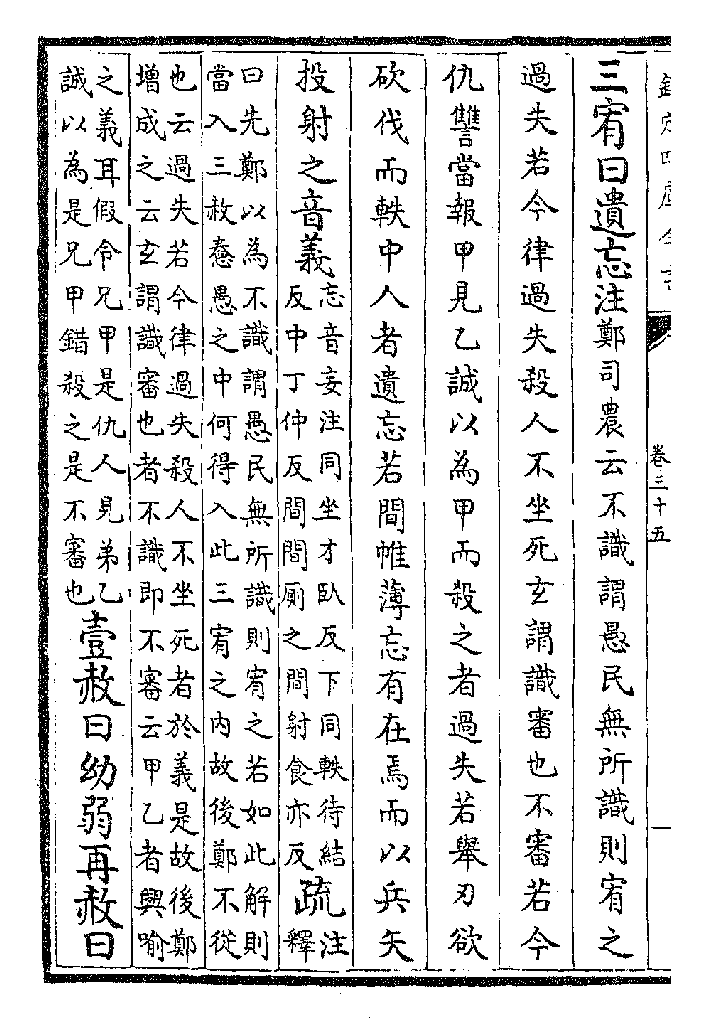 欽定四庫全書
卷三十五
一
三宥曰遺忘注鄭司農云不識謂愚民無所識則宥之
過失若今律過失殺人不坐死玄謂識審也不審若今
仇讐當報甲見乙誠以為甲而殺之者過失若舉刃欲
砍伐而軼中人者遺忘若間帷薄忘有在焉而以兵矢
投射之音義
忘音妄注同坐才臥反下同軼待結
反中丁仲反間間厠之間射食亦反
疏
注
釋
曰先鄭以為不識謂愚民無所識則宥之若如此解則
當入三赦憃愚之中何得入此三宥之内故後鄭不從
也云過失若今律過失殺人不坐死者於義是故後鄭
增成之云玄謂識審也者不識即不審云甲乙者興喻
之義耳假令兄甲是仇人見弟乙
誠以為是兄甲錯殺之是不審也
壹赦曰幼弱再赦曰